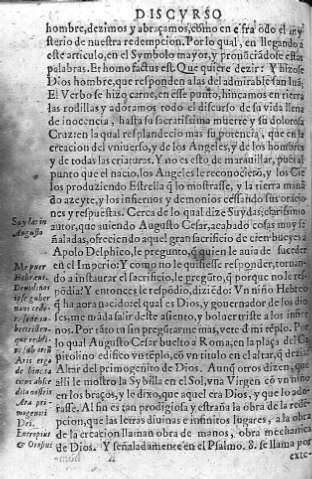 DISCVRSO
hombre, dezimos y abraçamos, como en eſra odo el my
ſterio de nueſtra redempcion. Por lo qual, en llegando a
eſte articulo, en el Symbolo mayor, y pronũciãdoſe eſtas
palabras. Et homo factus eſt. Que quiere dezir: Y hizoſe
Dios hombre, que reſponden a las del admirable ſan Iuã,
El Verbo ſe hizo carne, en eſſe punto, hincamos en tierra
las rodillas y adoramos todo el diſcurſo de ſu vida llena
de inocencia, haſta ſu ſacratiſsima muerte y ſu doloroſa
Cruz: en la qual reſplandecio mas ſu potencia, que en la
creacion del vniuerſo, y de los Angeles, y de los hombres
y de todas las criaturas. Y no es eſto de marauillar, pues al
punto que el nacio, los Angeles le reconociero, y los Cie
los produziendo Eſtrella q̃ lo moſtraſſe, y la tierra manã
do azeyte, y los infiernos y demonios ceſſando ſus oracio
nes y reſpueſtas. Cerca de lo qual dize Suydas, clariſsimo
autor, que auiendo Auguſto Ceſar, acabado coſas muy ſe
ñaladas, ofreciendo aquel gran ſacrificio de cien bueyes a
Apolo Delphico, le pregunto, q̃ quien le auia de ſuceder
en el Imperio? Y como no le quiſieſſe reſponder, tornan-
do a inſtaurar el ſacrificio, le pregũto, q̃ porque no le reſ
põdia? Y entonces le reſpõdio, diziẽdo: Vn niño Hebreo
q̃ ha aora nacido: el qual es Dios, y gouernador de los dio
ſes, me mãda ſalir deſte aſiento, y boluer triſte a los infier
nos. Por tãto tu ſin pregũtarme mas, vete d̃ mi tẽplo. Por
lo qual Auguſto Ceſar buelto a Roma, en la plaça del Ca
pitolino edifico vn tẽplo, cõ vn titulo en el altar, q̃ dezia:
Altar del primogenito de Dios. Aunq̃ otros dizen, que
alli le moſtro la Sybilla en el Sol, vna Virgen cõ vn niño
en los braços, y le dixo, que aquel era Dios, y que lo ado-
raſſe. Al fin es tan prodigioſa y eſtraña la obra de la redẽ-
pcion, que las letras diuinas e infinitos lugares, a la obra
de la creacion llaman obra de manos, obra mechanica
de Dios. Y ſeñaladamente en el Pſalmo. 8. ſe llama por
exce-
Suydas in
Auguſto
Me puer
Hebreus,
Diuos
ipſe guber
nans
Aris ergo
Ara pri-
mogeniti
Dei.
Eutropius
& Oroſius